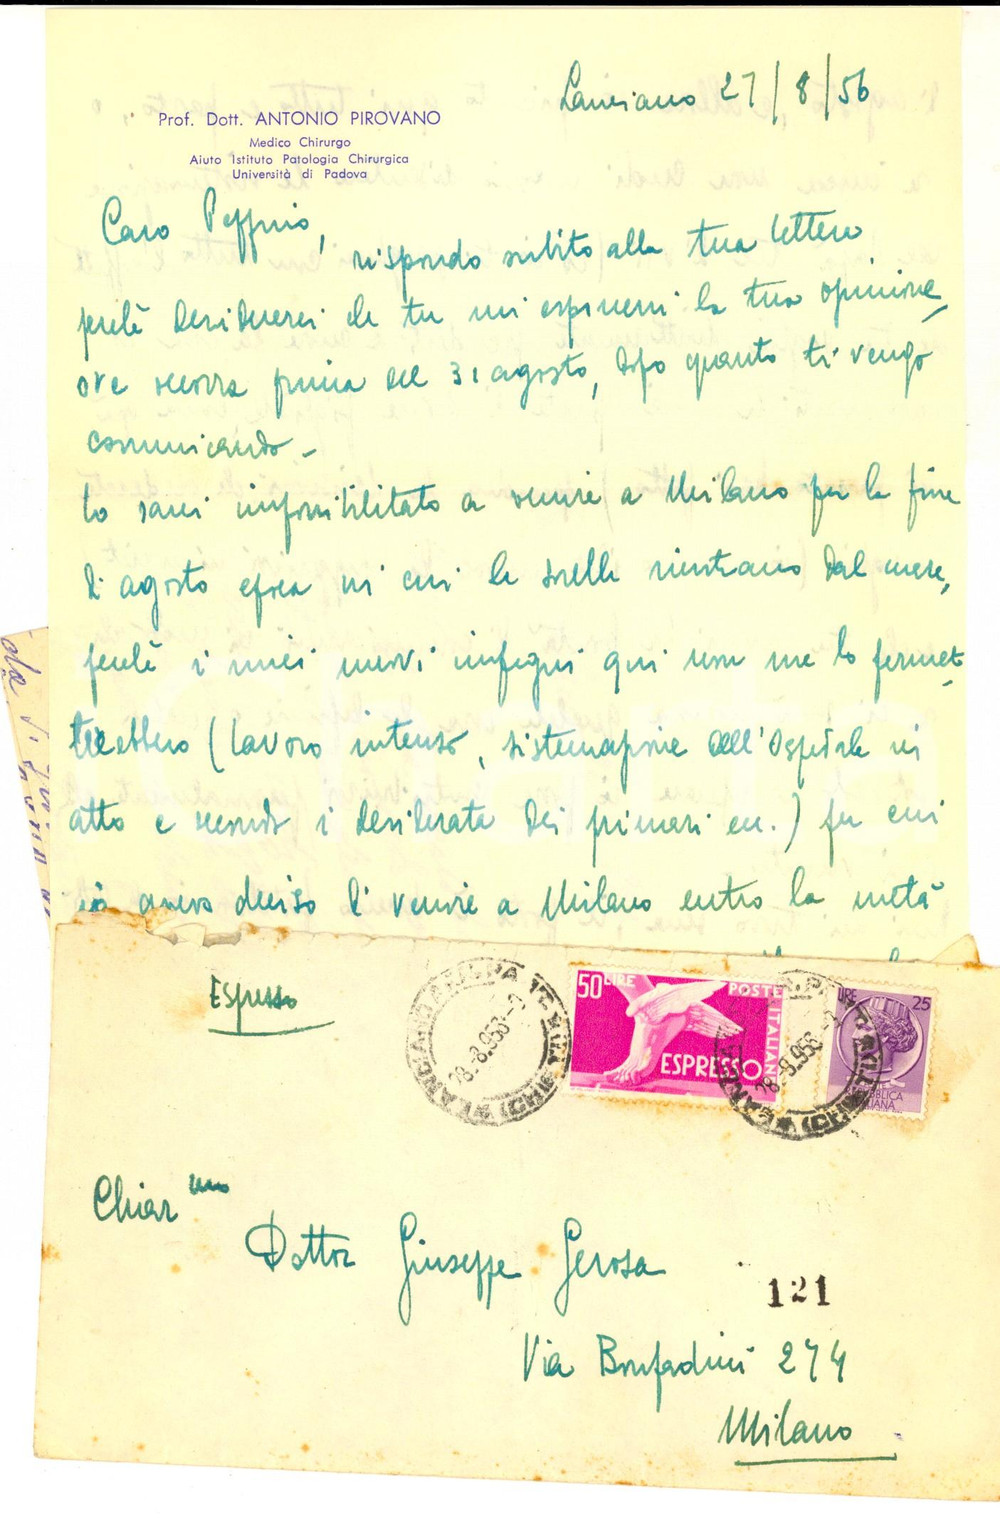 Lanciano 27/8/56
Prof. Dott. ANTONIO PIROVANO
Medico Chirurgo
Aiuto Istituto Patologia Chirurgica
Università di Padova
Caro Peppino,
rispondo subito alla tua lettera
perchè desidererei che tu mi esprimessi la tua opinione,
ove occorra prima del 31 agosto, dopo quanto ti vengo
comunicando -
Io sarei impossibilitato a venire a Milano per la fine
di agosto epoca in cui le sorelle rientrano dal mare,
perchè i miei nuovi impegni qui non me lo permet-
terebbero (lavoro intenso, sistemazione dell'Ospedale in
atto e secondo i desiderata dei primari ecc.) per cui
io avevo deciso di venire a Milano entro la metà
Espresso
LANCIANO
28-8.956
50 LIRE
POSTE ITALIANE
ESPRESSO
28-8.956
LIRE 25
REPUBBLICA ITALIANA
Chiar mo
Dottor Giuseppe Gerosa
121
Via Bonfadini 274
Milano